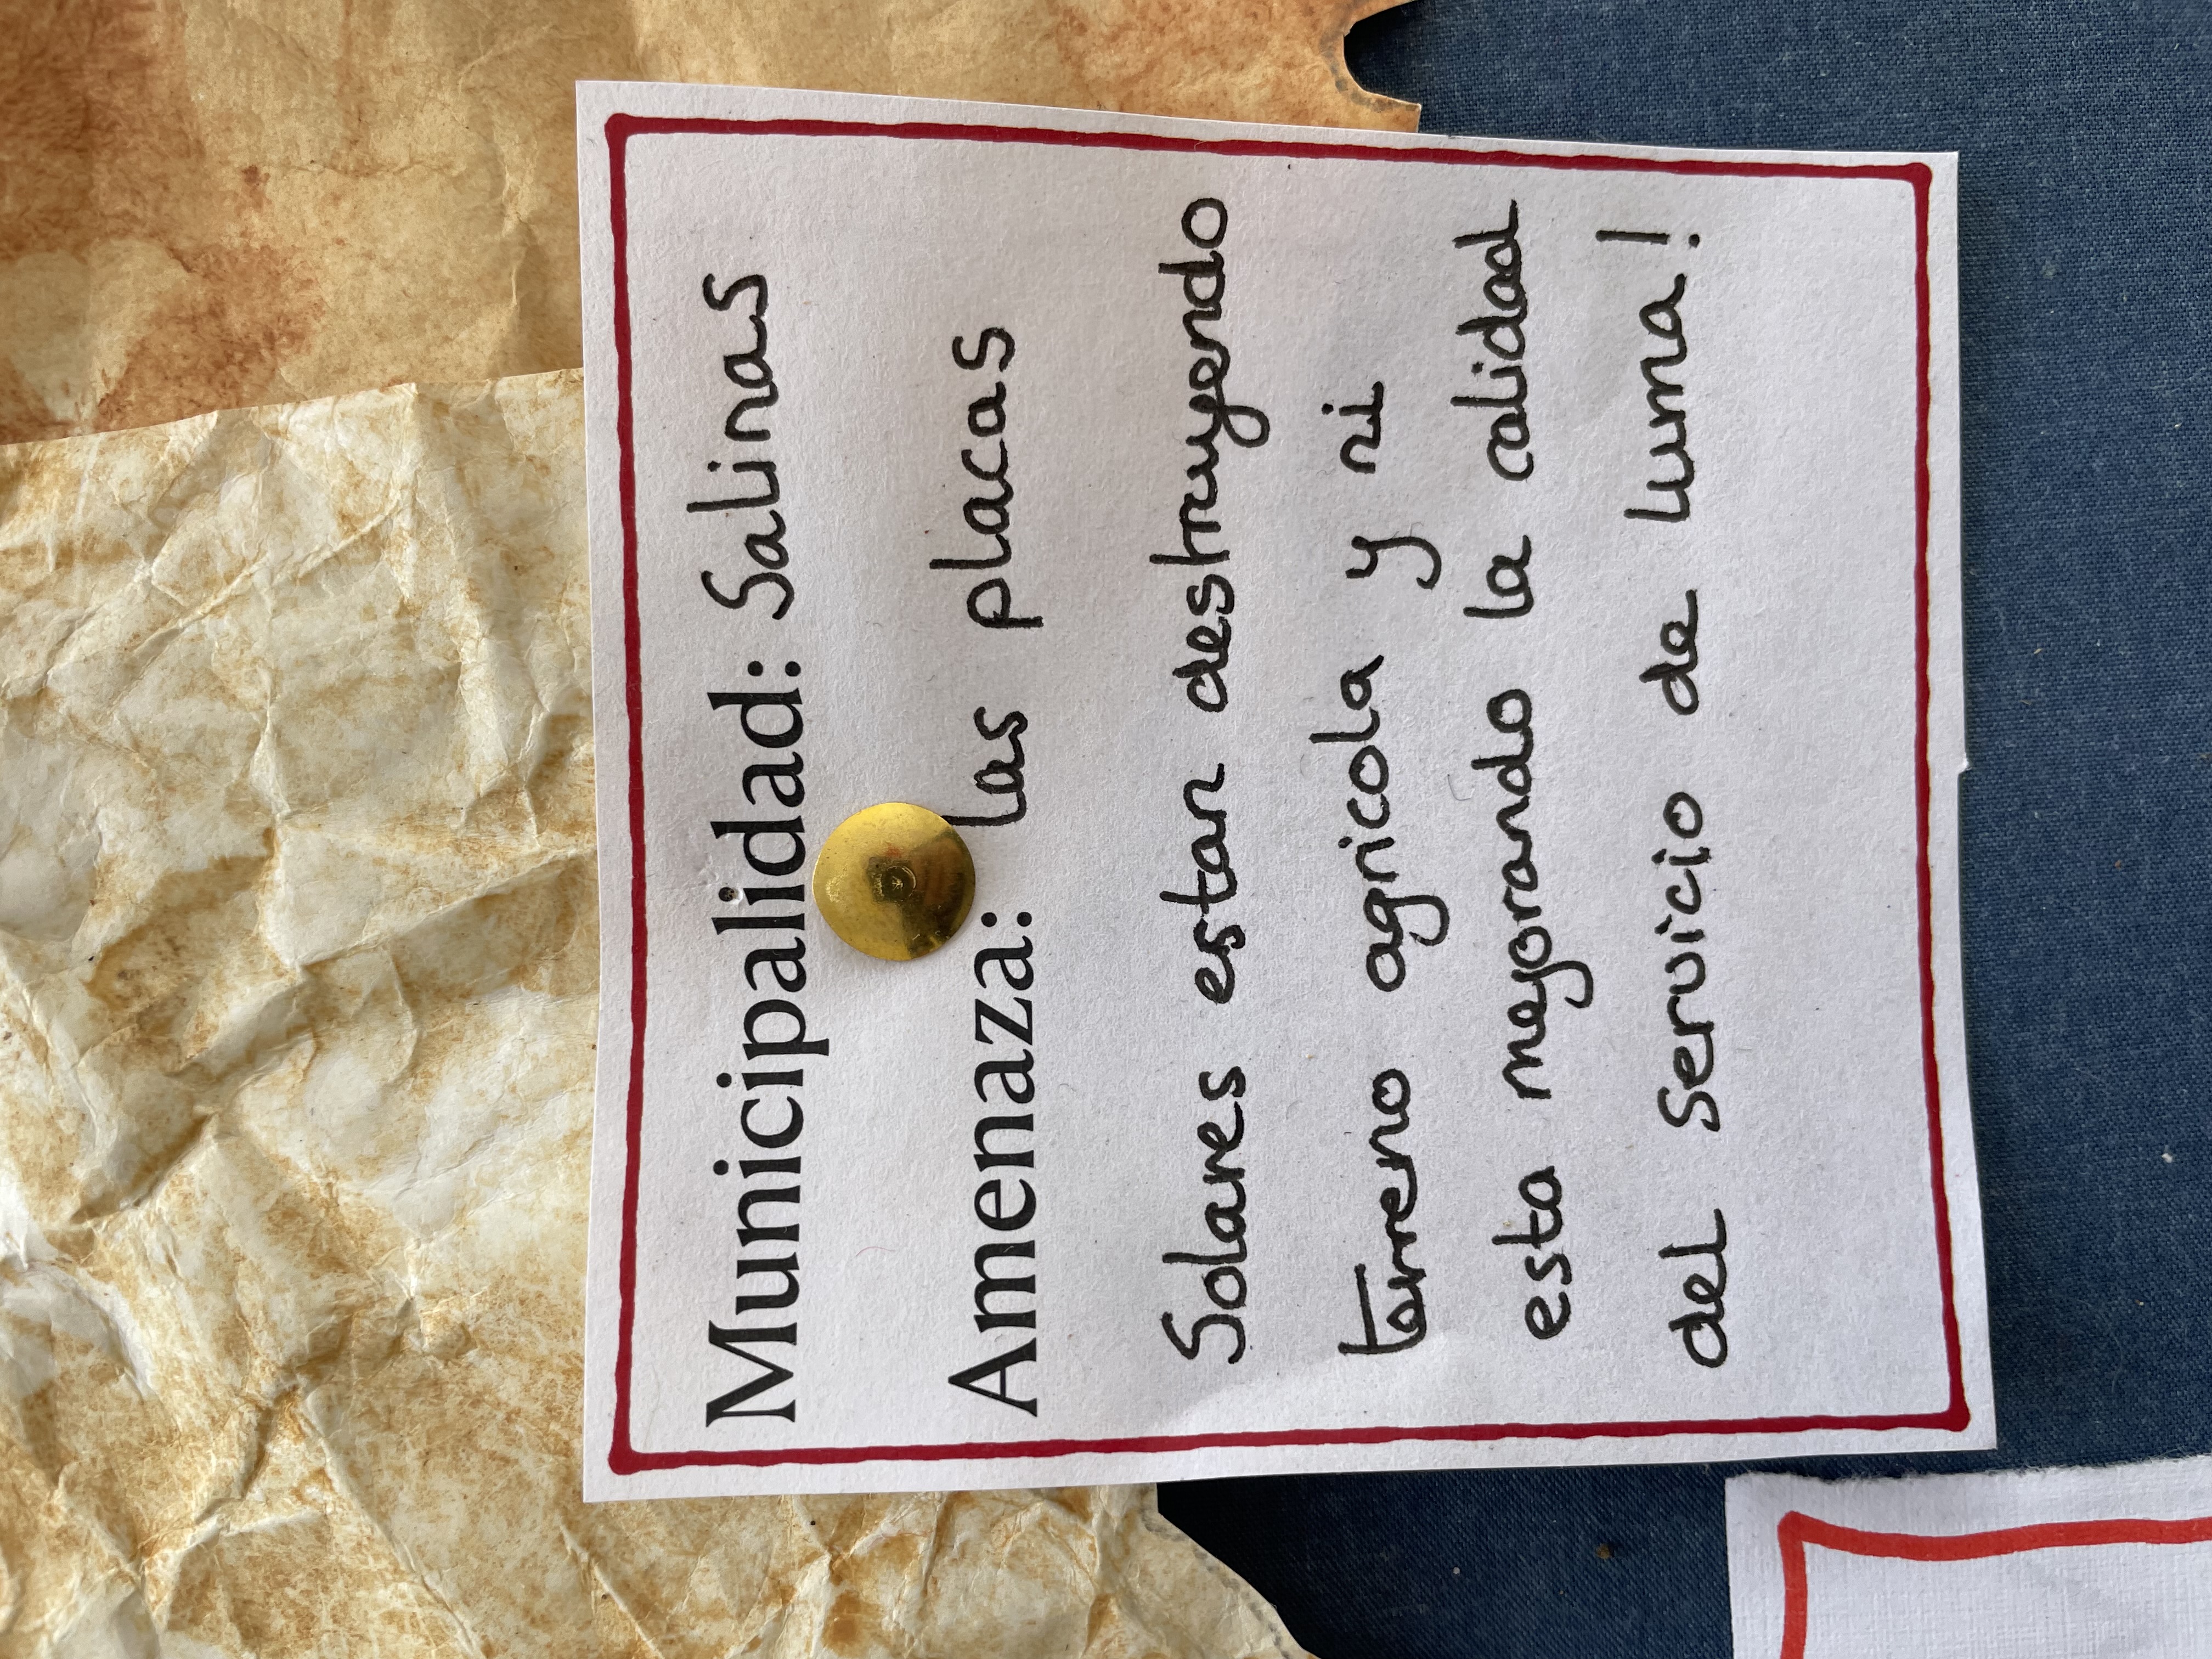 Municipalidad: Salinas
Amenaza: las placas
Solares estan destruyendo
terreno agricola y ni
esta mejorando la calidad
del servicio de luma!